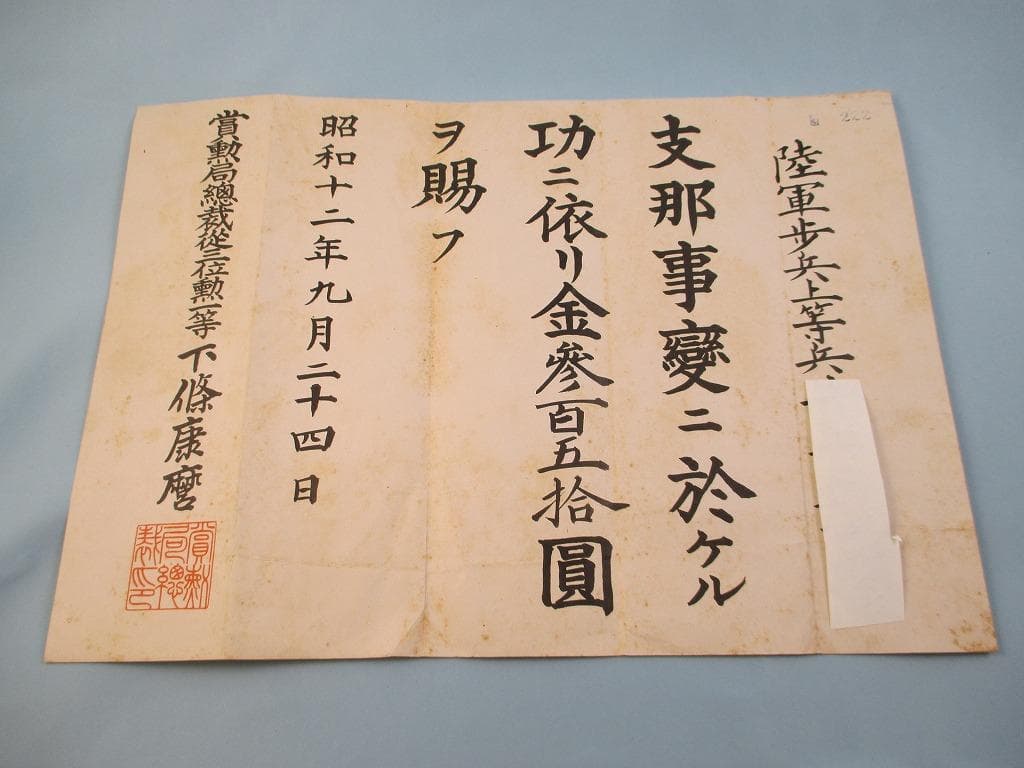 222
陸軍步兵上等兵
支那事變ニ於ケル
功ニ依リ金參百五拾圓
ヲ賜フ
昭和十二年九月二十四日
賞勲局總裁從三位勲一等下條康麿
賞勲局總裁印